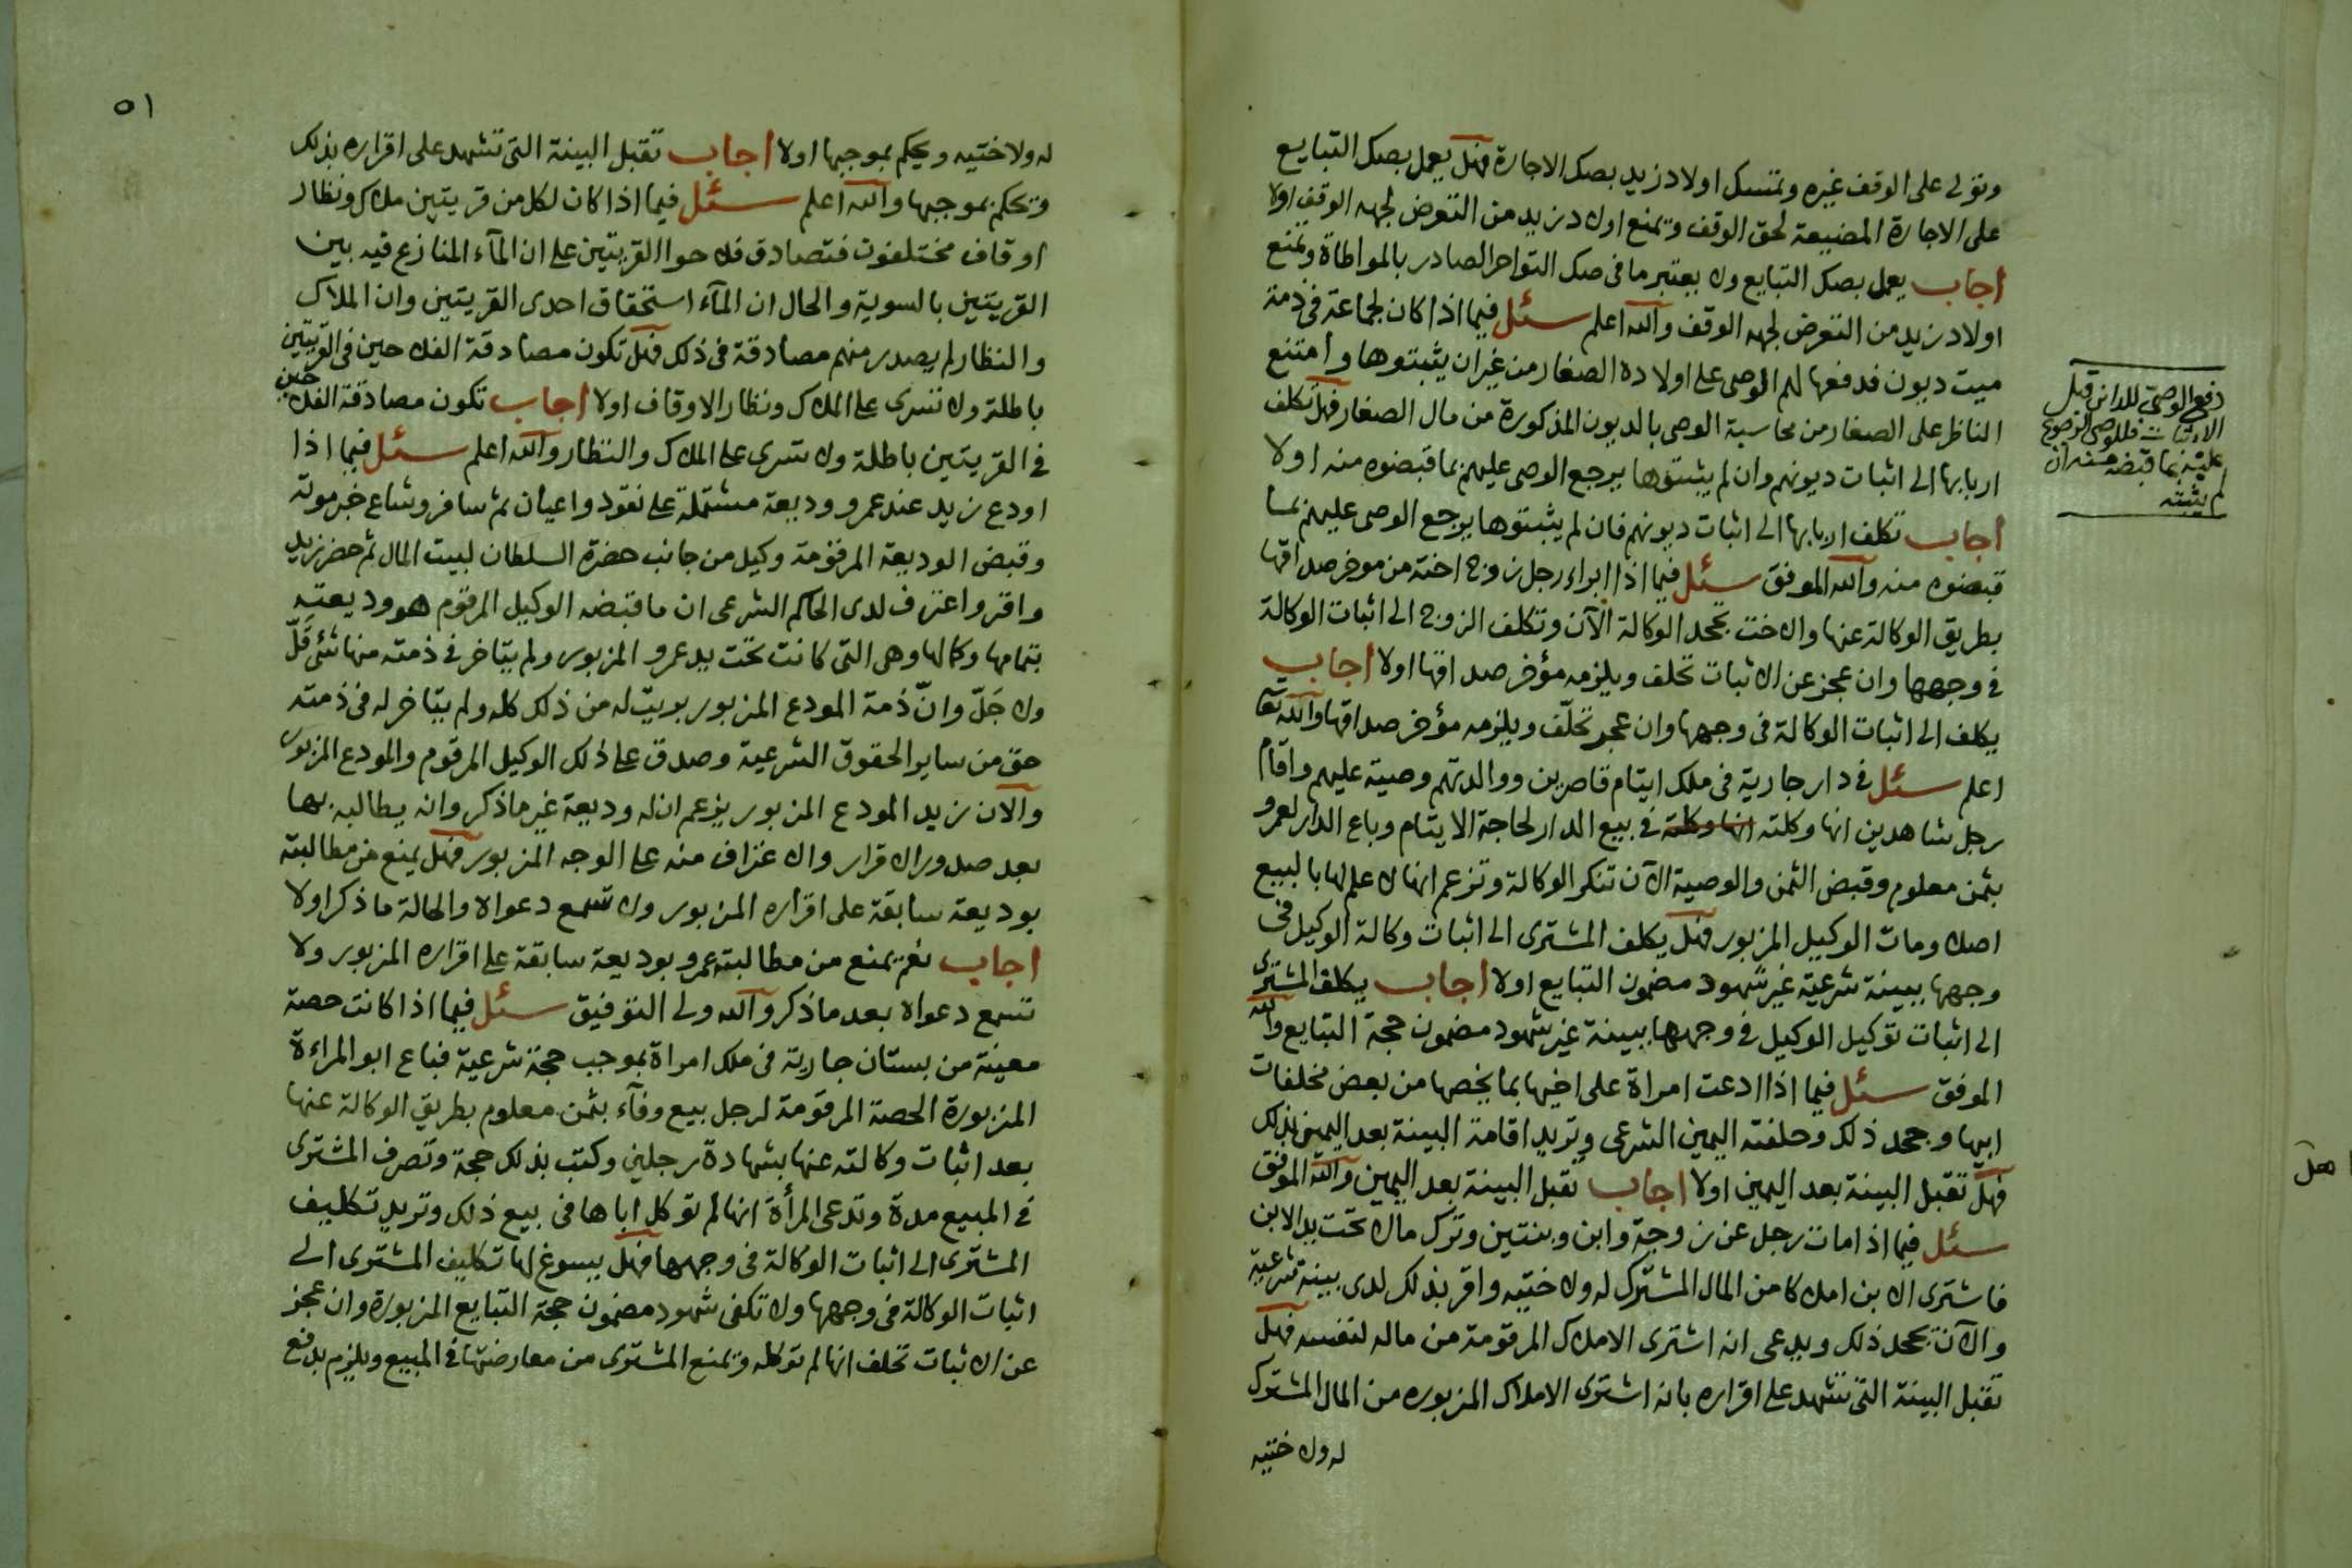 وتولى على الوقف غيره وتمسك اولاد زيد بصك الاجارة فهل يعمل بصك التبايع
على الاجارة المضيعة لحق الوقف وتمنع اولاد زيد من التعرض لجهه الوقف اولا
اجاب يعمل بصك التبايع ولا يعتبر ما فى صك التواجر الصادر بالمواطاة وتمنع
اولاد زيد من التعرض لجهه الوقف والله اعلم سئل فيما اذا كان لجماعة فى ذمة
ميت ديون فدفعها لهم الوصى على اولاده الصغار من غير ان يثبتوها وامتنع
الناظر على الصغار من محاسبة الوصى بالديون المذكورة من مال الصغار فهل تكلف
اربابها الى اثبات ديونهم وان لم يثبتوها يرجع الوصى عليهم بما قبضوه منه اولا
اجاب تكلف اربابها الى اثبات ديونهم فان لم يثبتوها يرجع الوصى عليهم بما
قبضوه منه والله الموفق سئل فيما اذا ابراء رجل زوج اخته من موخر صداقها
بطريق الوكالة عنها والاخت تجحد الوكالة الآن وتكلف الزوج الى اثبات الوكالة
فى وجهها وان عجز عن الاثبات تحلف ويلزمه مؤخر صداقها اولا اجاب
يكلف الى اثبات الوكالة فى وجهها وان عجز تحلّف ويلزمه مؤخر صداقها والله تعا
اعلم سئل فى دار جارية فى ملك ايتام قاصرين ووالدتهم وصية عليهم واقام
رجل شاهدين انها وكلته انها وكلته فى بيع الدار لحاجة الايتام وباع الدار لعمرو
بثمن معلوم وقبض الثمن والوصية الآن تنكر الوكالة وتزعم انها لا علم لها بالبيع
اصلا ومات الوكيل المزبور فهل يكلف المشترى الى اثبات وكالة الوكيل فى
وجهها ببينة شرعية غير شهود مضمون التبايع اولا اجاب يكلف المشترى
الى اثبات توكيل الوكيل فى وجهها ببينة غير شهود مضمون حجة التبايع والله
الموفق سئل فيما اذا ادعت امراة على اخيها بما يخصها من بعض مخلفات
ابيها وجحد ذلك وحلفته اليمين الشرعى وتريد اقامة البينة بعد اليمين بذلك
فهل تقبل البينة بعد اليمين اولا اجاب تقبل البينة بعد اليمين والله الموفق
سئل فيما اذا مات رجل عن زوجة وابن وبنتين وترك مالا تحت يد الابن
فاشترى الابن املاكا من المال المشترك له ولاختيه واقر بذلك لدى بينة شرعية
والآن يجحد ذلك ويدعى انه اشترى الاملاك المرقومة من ماله لنفسه فهل
تقبل البينة التى تشهد على اقراره بانه اشترى الاملاك المزبوره من المال المشترك
له ولاختيه
دفع الوصى للداين قبل
الاثبات فللوصى الرجوع
عليه بما قبضه منه ان
لم يثبته
٥١
له ولاختيه ويحكم بموجبها اولا اجاب تقبل البينة التى تشهد على اقراره بذلك
وتحكم بموجبها والله اعلم سئل فيما اذا كان لكل من قريتين ملاك ونظار
اوقاف مختلفون فتصادق فلاحوا القريتين على ان المآء المنازع فيه بين
القريتين بالسوية والحال ان المآء استحقاق احدى القريتين وان الملاك
والنظار لم يصدر منهم مصادقة فى ذلك فهل تكون مصادقة الفلاحين فى القريتين
باطلة ولا تسرى على الملاك ونظار الاوقاف اولا اجاب تكون مصادقة الفلاحين
فى القريتين باطلة ولا تسرى على الملاك والنظار والله اعلم سئل فيما اذا
اودع زيد عند عمرو وديعة مشتملة على نقود واعيان ثم سافر وشاع خبر موته
وقبض الوديعة المرقومة وكيل من جانب حضرة السلطان لبيت المال ثم حضر زيد
واقر واعترف لدى الحاكم الشرعى ان ما قبضه الوكيل المرقوم هو وديعته
بتمامها وكمالها وهى التى كانت تحت يد عمرو المزبور ولم يتاخر فى ذمته منها شئ قلّ
ولا جَلّ وانّ ذمة المودع المزبور بريت له من ذلك كله ولم يتاخر له فى ذمته
حق من ساير الحقوق الشرعية وصدق على ذلك الوكيل المرقوم والمودع المزبور
والان زيد المودع المزبور يزعم ان له وديعة غير ماذكر وانه يطالبه بها
بعد صدور الاقرار والاعتراف منه على الوجه المزبور فهل يمنع من مطالبته
بوديعة سابقة على اقراره المزبور ولا تسمع دعواه والحالة ماذكر اولا
اجاب نعم يمنع من مطالبته عمرو بوديعة سابقة على اقراره المزبور ولا
تسمع دعواه بعد ماذكر والله ولى التوفيق سئل فيما اذا كانت حصة
معينة من بستان جارية فى ملك امراة بموجب حجة شرعية فباع ابو المراءة
المزبورة الحصة المرقومة لرجل بيع وفآء بثمن معلوم بطريق الوكالة عنها
بعد اثبات وكالته عنها بشهادة رجلين وكتب بذلك حجة وتصرف المشترى
فى المبيع مدة وتدعى المرأة انها لم توكل اباها فى بيع ذلك وتريد تكليف
المشترى الى اثبات الوكالة فى وجهها فهل يسوغ لها تكليف المشترى الى
اثبات الوكالة فى وجهها ولا تكفى شهود مضمون حجة التبايع المزبورة وان عجز
عن الاثبات تحلف انها لم توكله وتمنع المشترى من معارضتها فى المبيع ويلزم بدفع